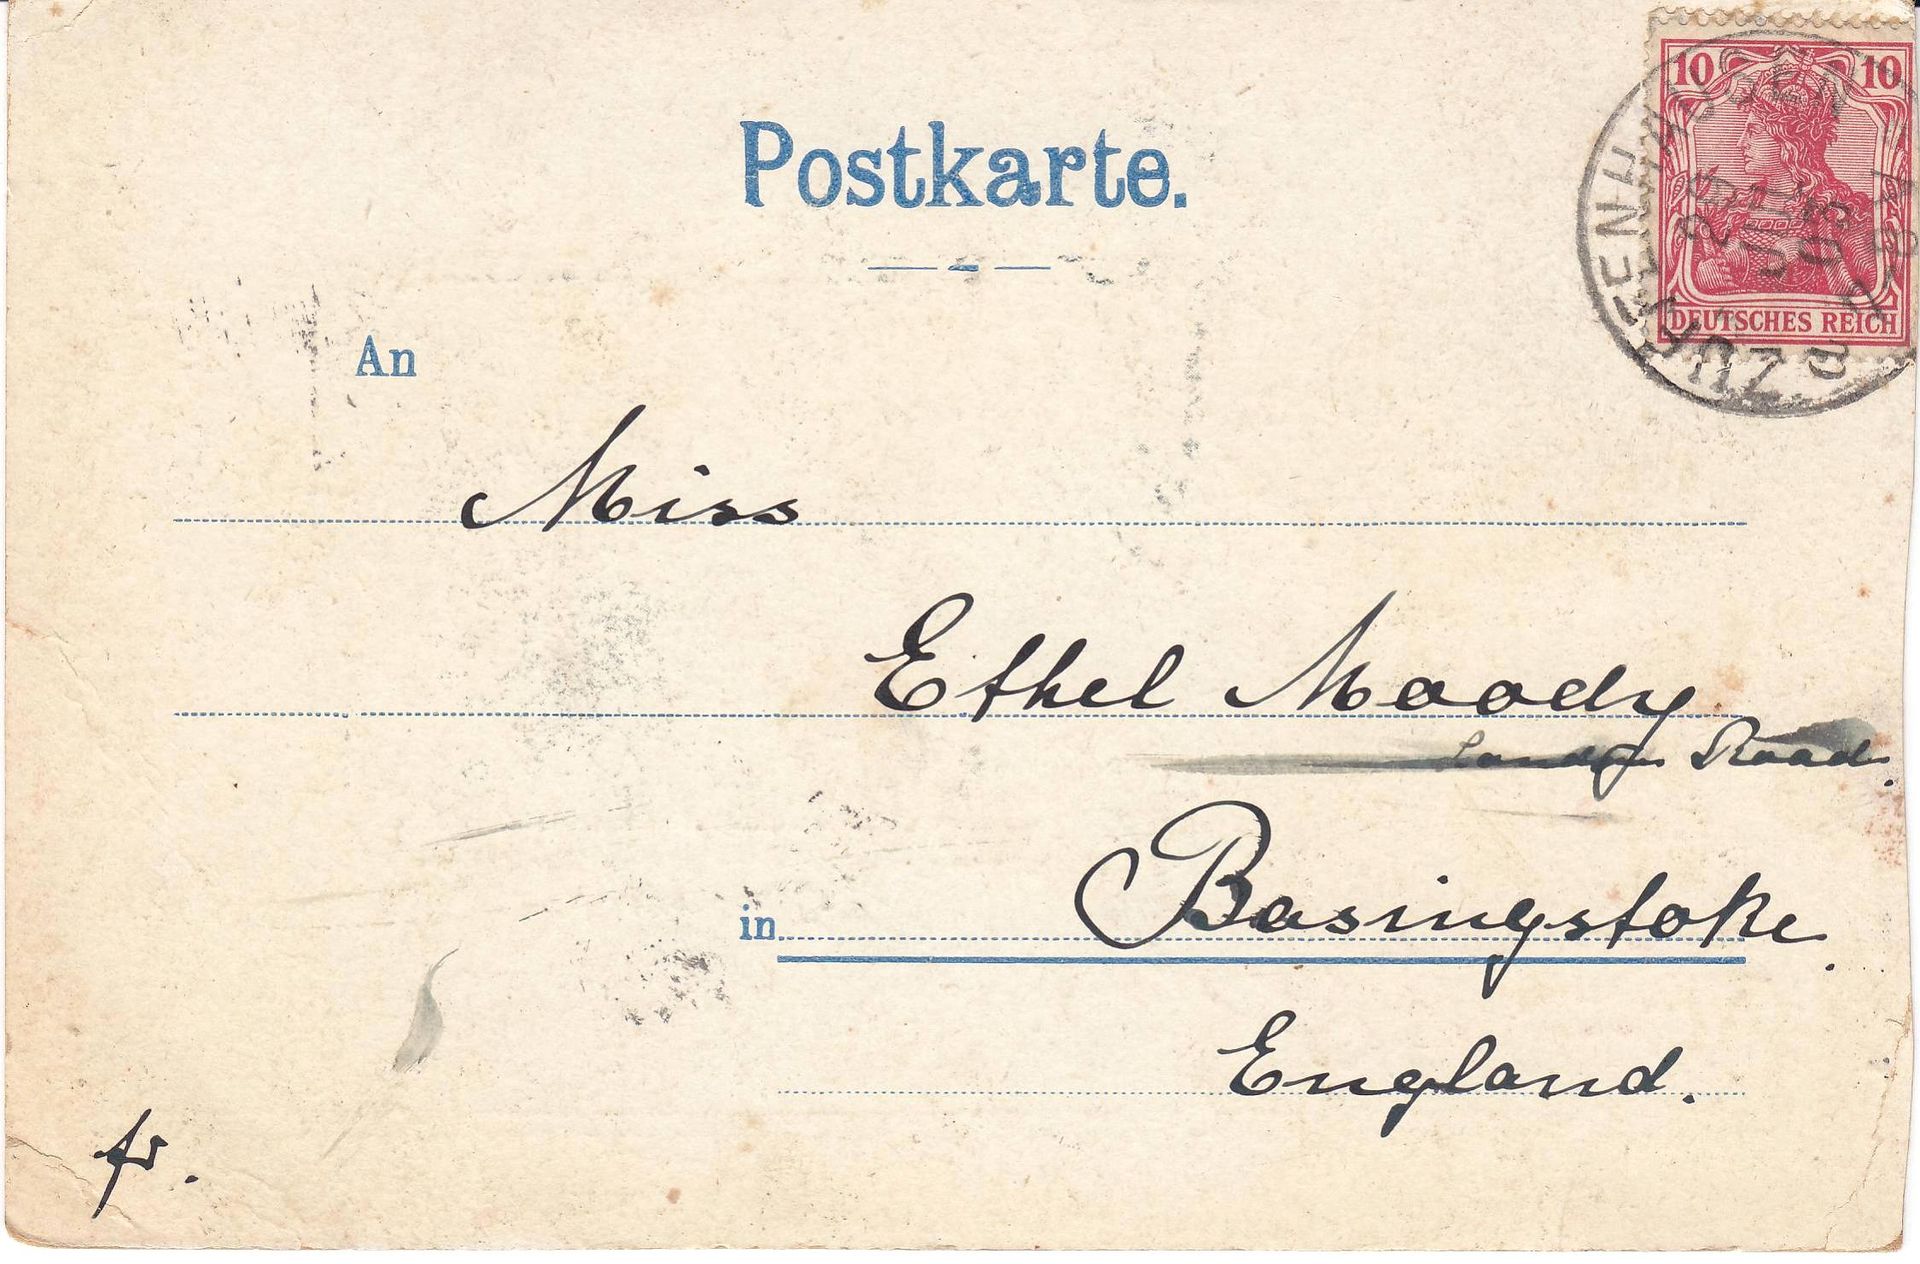 Postkarte.
10 10
DEUTSCHES REICH
An
Miss
Ethel Moody
London Road.
in Basingstoke.
England.
fr.